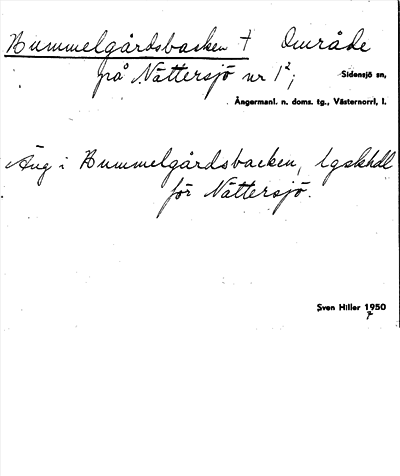 Hummelgårdsbacken † Område
på Nättersjö nr 1²;
Sidensjö sn,
Ångermanl. n. doms. tg., Västernorrl, l.
Äng i Hummelgårdsbacken, lgskhdl
för Nättersjö.
Sven Hiller 1950